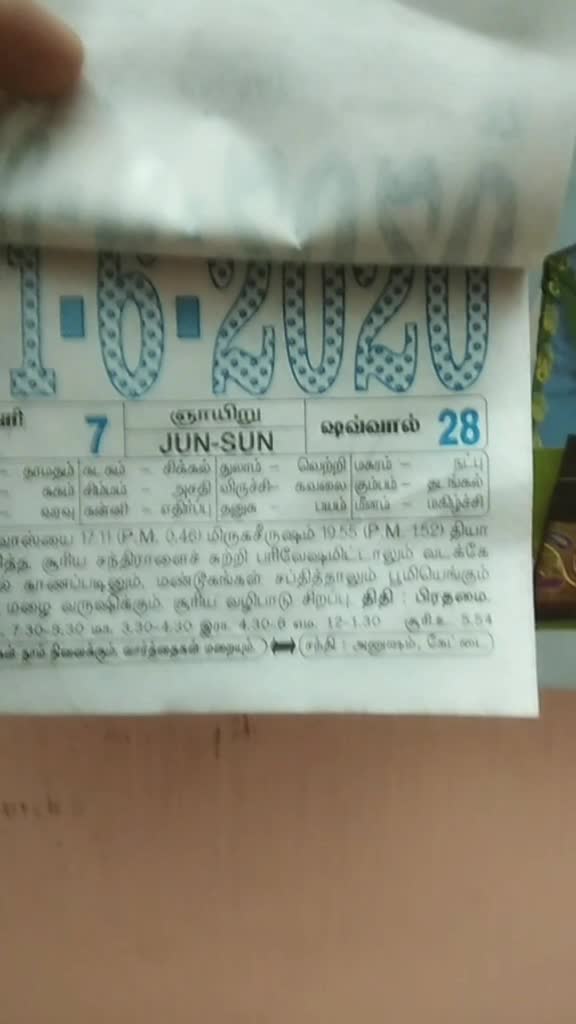 1-6-2020
னி 7 ஞாயிறு JUN-SUN ஷவ்வால் 28
– தாமதம் கடகம் – சிக்கல் துலாம் – வெற்றி மகரம் – நட்பு
– சுகம் சிம்மம் – அசதி விருச்சி– கவலை கும்பம்– தடங்கல்
– வரவு கன்னி – எதிர்ப்பு தனுசு – பயம் மீனம் – மகிழ்ச்சி
வாஸ்யை 17.11 (P.M. 0.46) மிருகசீருஷம் 19.55 (P.M. 1.52) தியா
சூரிய சந்திராளைச் சுற்றி பரிவேஷமிட்டாலும் வடக்கே
காணப்படினும், மண்டூகங்கள் சப்தித்தாலும் பூமியெங்கும்
மழை வருஷிக்கும். சூரிய வழிபாடு சிறப்பு. திதி : பிரதமை.
7.30-9.30 மா. 3.30-4.30 இரா. 4.30-6 எம. 12-1.30 சூரி.உ. 5.54
நாம் நினைக்கும் வார்த்தைகள் மறையும் சந்தி : அனுஷம், கேட்டை